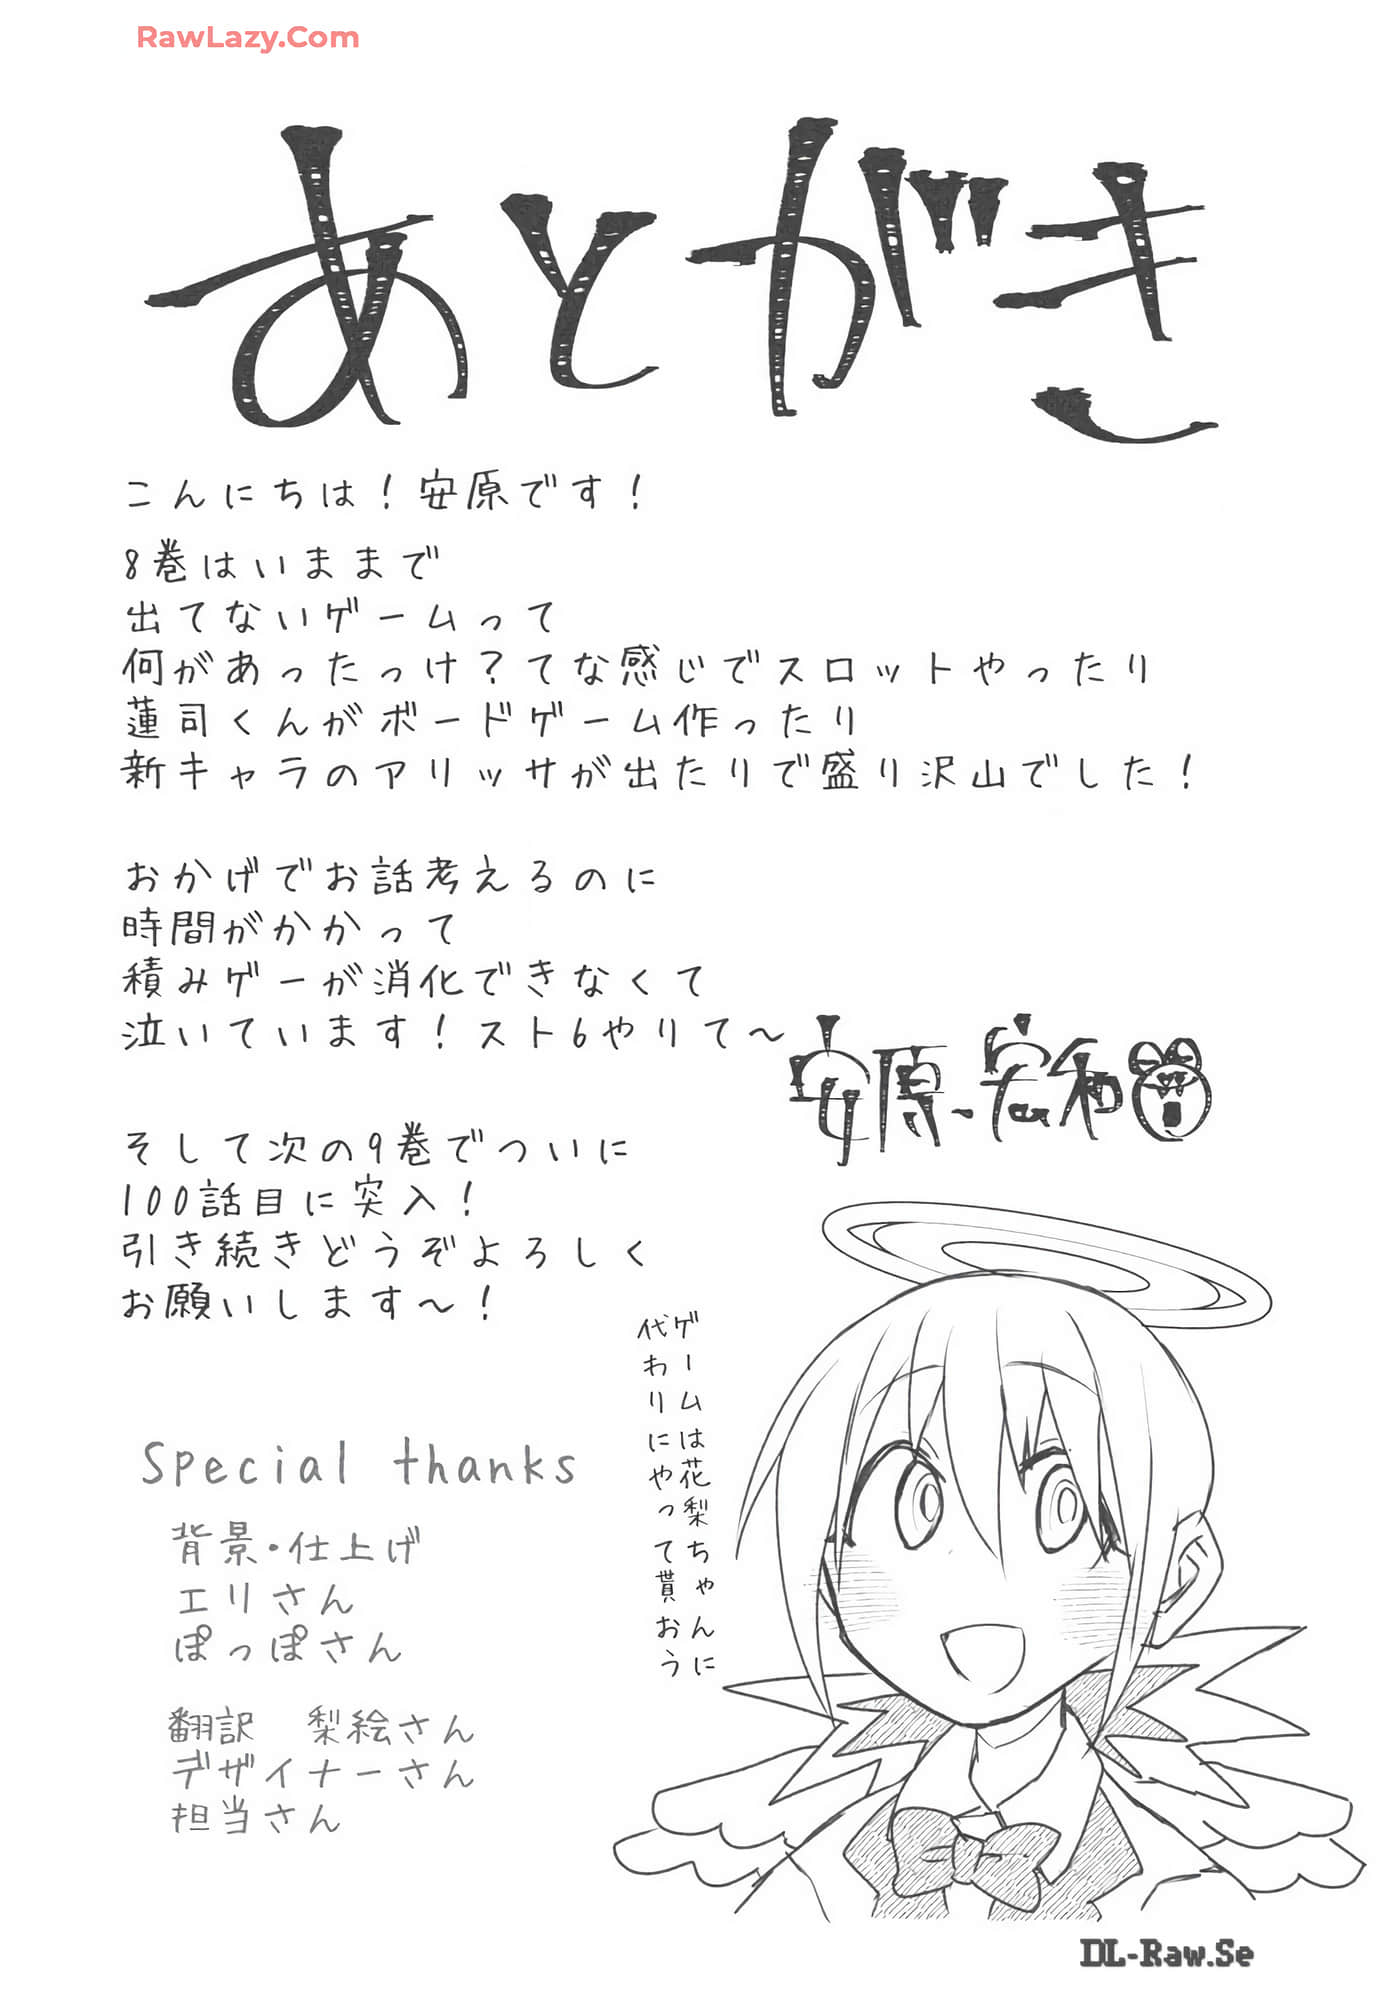 RawLazy.Com
あとがき
こんにちは！安原です！
8巻はいままで
出てないゲームって
何があったっけ？てな感じでスロットやったり
蓮司くんがボードゲーム作ったり
新キャラのアリッサが出たりで盛り沢山でした！
おかげでお話考えるのに
時間がかかって
積みゲーが消化できなくて
泣いています！スト6やりて～
安原宏和
そして次の9巻でついに
100話目に突入！
引き続きどうぞよろしく
お願いします～！
ゲームは花梨ちゃんに
代わりにやって貰おう
Special thanks
背景・仕上げ
エリさん
ぽっぽさん
翻訳 梨絵さん
デザイナーさん
担当さん
DL-Raw.Se